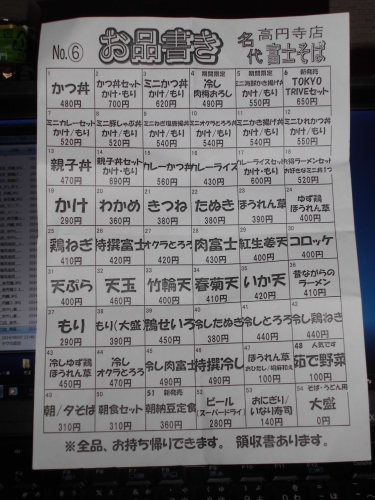 No.⑥ お品書き 名代 高円寺店 富士そば
1
かつ丼
480円
2
かつ丼セット
かけ・もり
700円
3
ミニかつ丼
かけ/もり
620円
4 期間限定
冷し
肉梅おろし
490円
5 期間限定
かけ/もり
550円
6 新発売
TOKYO
TRIVEセット
650円
7
ミニカレーセット
かけ/もり
520円
8
ミニ豚しゃぶ丼
かけ/もり
520円
9
かけ/もり
520円
10
ミニオクラとろろ丼
かけ/もり
520円
11
ミニかき揚げ丼
かけ/もり
520円
12
ミニひれかつ丼
かけ/もり
520円
13
親子丼
470円
14
親子丼セット
かけ・もり
690円
15
カレーかつ丼
560円
カレーライス
430円
カレーライスセット
かけ・もり
600円
18
お好きなミニ丼1つ
520円
19
かけ
290円
20
わかめ
360円
21
きつね
380円
22
たぬき
380円
23
ほうれん草
380円
24
ゆず鶏
ほうれん草
450円
25
鶏ねぎ
410円
26
特撰富士
410円
27
オクラとろろ
420円
28
肉富士
430円
29
紅生姜天
400円
30
コロッケ
400円
31
天ぷら
400円
32
天玉
460円
33
竹輪天
400円
34
春菊天
400円
35
いか天
420円
36
昔ながらの
ラーメン
410円
37
もり
290円
38
もり(大盛)
390円
39
鴨せいろ
450円
冷したぬき
390円
冷しとろろ
440円
冷し鶏ねぎ
440円
43
冷しゆず鶏
ほうれん草
450円
44
冷し
オクラとろろ
470円
45
冷し肉富士
430円
46
特撰冷し
490円
47
ほうれん草
100円
48 人気です
茹で野菜
100円
49
朝/夕そば
310円
50
朝食セット
310円
51 新発売
朝納豆定食
360円
52
ビール
(スーパードライ)
280円
53
おにぎり/
いなり寿司
140円
54 そば・うどん用
大盛
0円
※全品、お持ち帰りできます。 領収書あります。